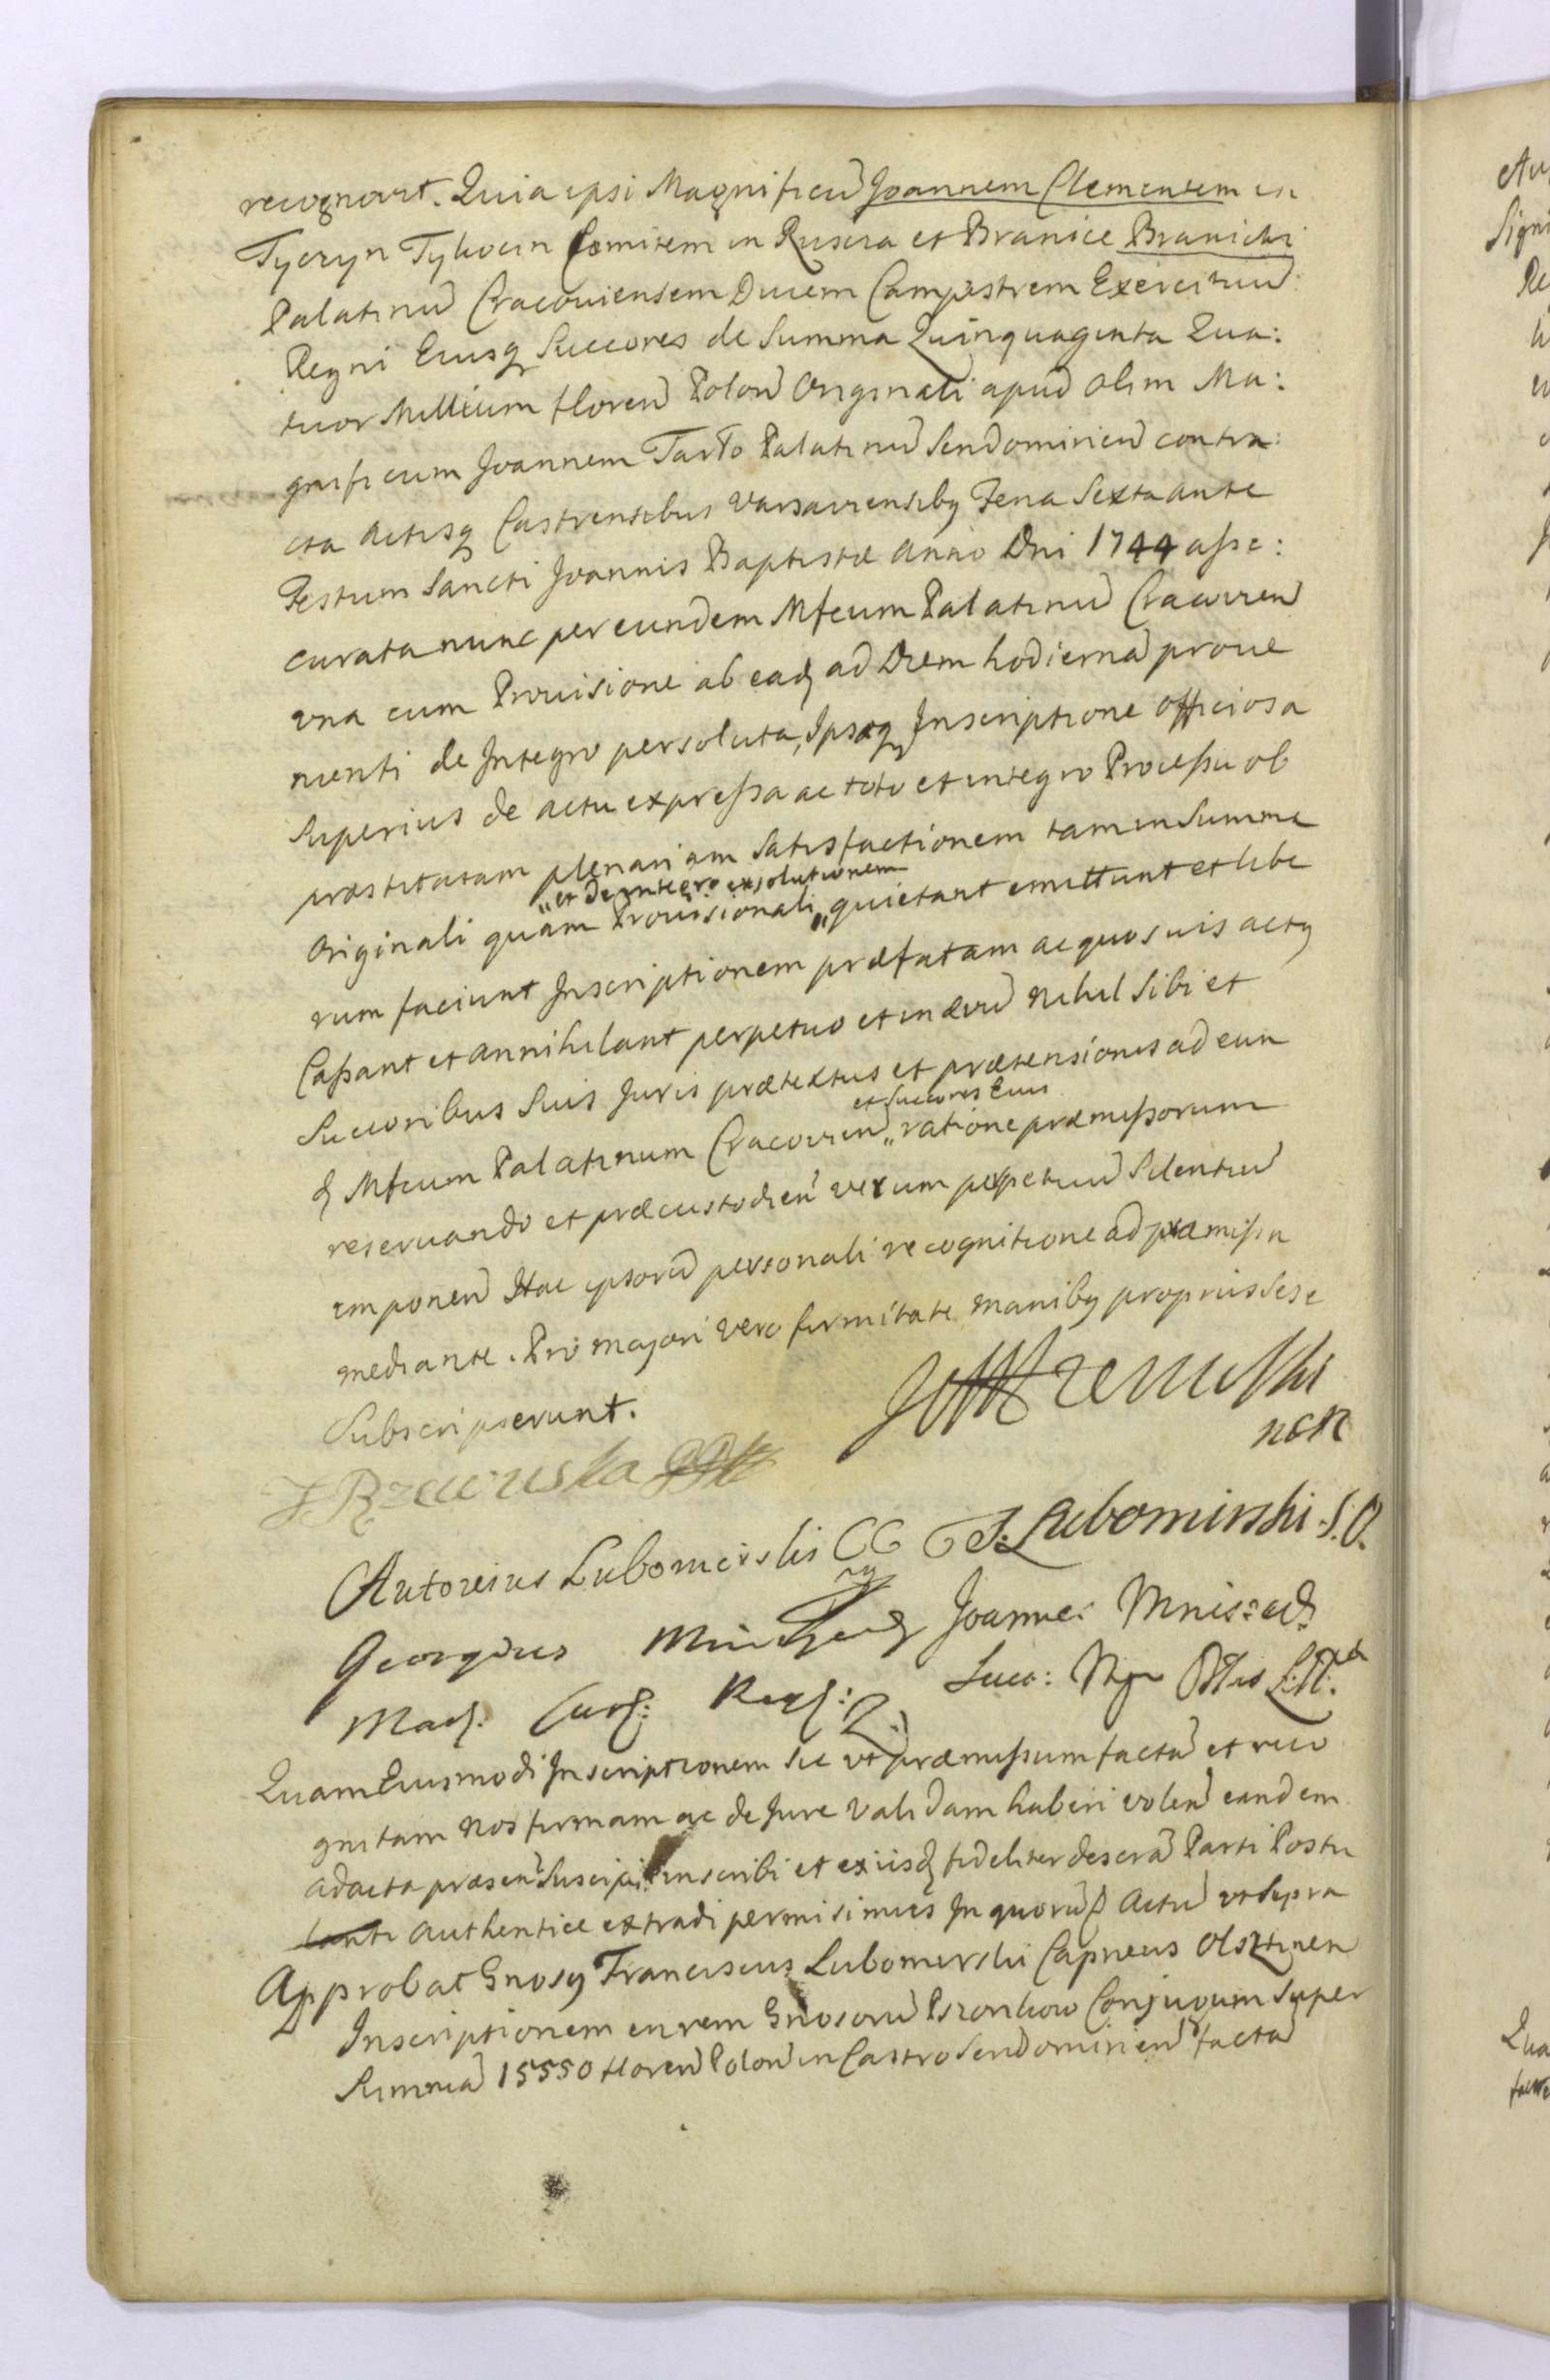 recognovit. Quia ipsi Magnificũ Joannem Clementem in
Tyczyn Tykocin Comitem in Ruscza et Branice Branicki
Palatinũ Cracoviensem Ducem Campestrem Exercituũ
Regni Eiusq Succores de Summa Quinquaginta Qua:
tuor Millium floren Polon Originali apud olim Ma:
gnificum Joannem Tarło Palatinũ Sendomirien contra:
cta Actisq Castrensibus Varsaviensibg Feria Sexta ante
Festum Sancti Joannis Baptistæ Anno Dni 1744 asse:
curata nunc per eundem Mfcum Palatinũ Cracovien
una cum Provisione ab eadq ad Diem hodiernã prove
nienti de Integro persoluta, Ipsaq Inscriptione officiosa
Superius de actu expressa ac toto et integro Processu ob
præstitutam plenariam Satisfactionem tam in Summe
„et de integro exsolutionem
Originali quàm Provisionali „ quietant emittunt et libe
rum faciunt Inscriptionem præfatam ac quosvis actg
Cassant et annihilant perpetuo et in ævũ Nihil Sibi et
Succoribus Suis Juris prætextus et prætensionis ad eun
et Succores Eius
d Mfcum Palatinum Cracovien „ ratione præmissorum
reservando et præcustodien verum perpetuũ Silentiũ
imponen Hac ipsorũ personali recognitione ad præmissa
mediante. Pro majori vero firmitate manibg propriis Sese
Subscripserunt.
NCR
J Rzewuska
Antonius Lubomirski J. Lubomirski S.O.
Georgius Mniszech Joannes Mniszech
Mad. Cur: Reg: Succ:
Quam Eiusmodi Inscriptionem sic ut præmissum factã et reco
gnitam Nos firmam ac de Jure Validam haberi volen eandem
ad acta præsen Suscipi inscribi et ex iisd fideliter descrã Parti Postu
lanti Authentice extradi permisimus In quorũ Actũ ut supra
Approbat Gnosg Franciscus Lubomirski Capneus Olsztinen
Inscriptionem in rem Gnosorũ Conjugum super
Summã 15550 floren Polon in Castro Sendomirien factã